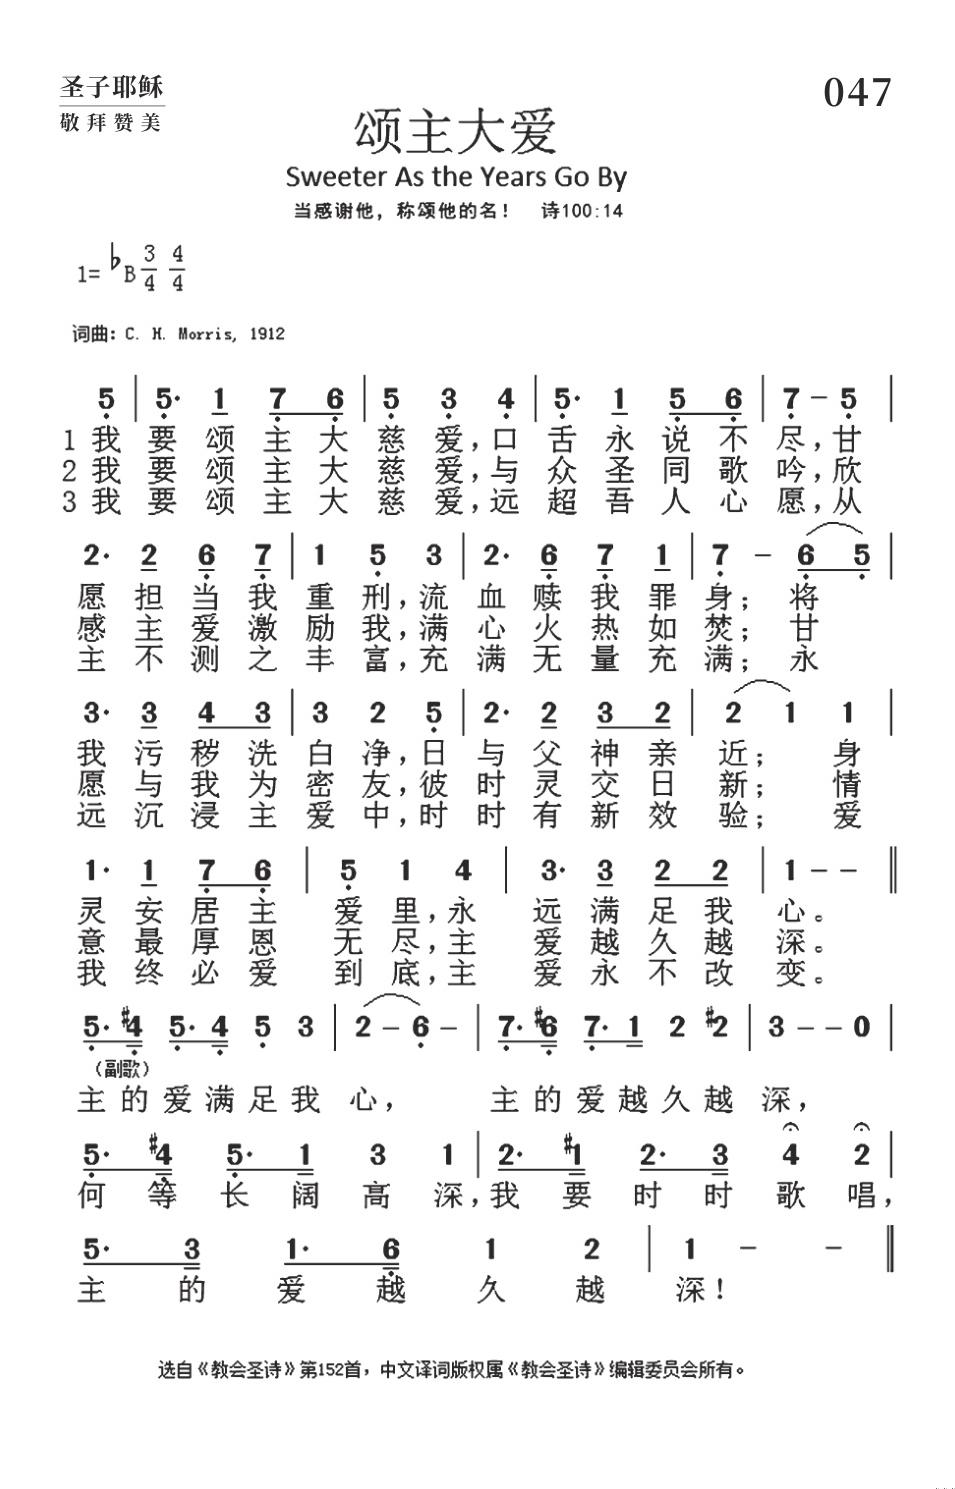 圣子耶稣
敬拜赞美
047
颂主大爱
Sweeter As the Years Go By
当感谢他，称颂他的名！ 诗100:14
1= ♭B 3/4 4/4
词曲: C. H. Morris, 1912
5 | 5· 1 7 6 | 5 3 4 | 5· 1 5 6 | 7 – 5 |
1 我要颂主大慈爱,口舌永说不尽,甘
2 我要颂主大慈爱,与众圣同歌吟,欣
3 我要颂主大慈爱,远超吾人心愿,从
2· 2 6 7 | 1 5 3 | 2· 6 7 1 | 7 – 6 5 |
愿担当我重刑,流血赎我罪身；将
感主爱激励我,满心火热如焚；甘
主不测之丰富,充满无量充满；永
3· 3 4 3 | 3 2 5 | 2· 2 3 2 | 2 1 1 |
我污秽洗白净,日与父神亲近；身
愿与我为密友,彼时灵交日新；情
远沉浸主爱中,时时有新效验；爱
1· 1 7 6 | 5 1 4 | 3· 3 2 2 | 1 – – ‖
灵安居主爱里,永远满足我心。
意最厚恩无尽,主爱越久越深。
我终必爱到底,主爱永不改变。
5· #4 5· 4 5 3 | 2 – 6 – | 7· #6 7· 1 2 #2 | 3 – – 0 |
（副歌）
主的爱满足我心， 主的爱越久越深，
5· #4 5· 1 3 1 | 2· #1 2· 3 4 2 |
何等长阔高深,我要时时歌唱，
5· 3 1· 6 1 2 | 1 – – ‖
主的爱越久越深！
选自《教会圣诗》第152首，中文译词版权属《教会圣诗》编辑委员会所有。